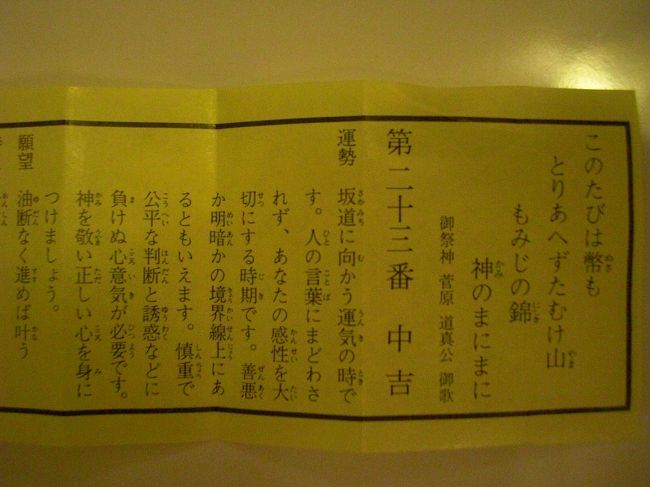 このたびは幣も
とりあへずたむけ山
もみじの錦
神のまにまに
御祭神 菅原 道真公 御歌
第二十三番 中吉
運勢 坂道に向かう運気の時で
す。人の言葉にまどわさ
れず、あなたの感性を大
切にする時期です。善悪
か明暗かの境界線上にあ
るともいえます。慎重で
公平な判断と誘惑などに
負けぬ心意気が必要です。
神を敬い正しい心を身に
つけましょう。
願望 油断なく進めば叶う